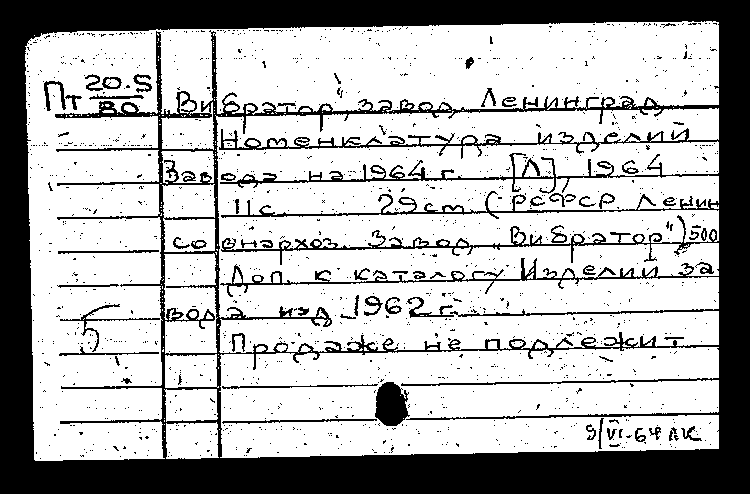 Пт 20.5/80
„Вибратор", завод. Ленинград
Номенклатура изделий
завода на 1964 г. [Л], 1964
11с. 29cm (РСФСР Ленин
совнархоз. Завод „Вибратор") 500
Доп. к каталогу Изделий за
вода изд 1962 г.
5
Продаже не подлежит
9/VI-64 АК